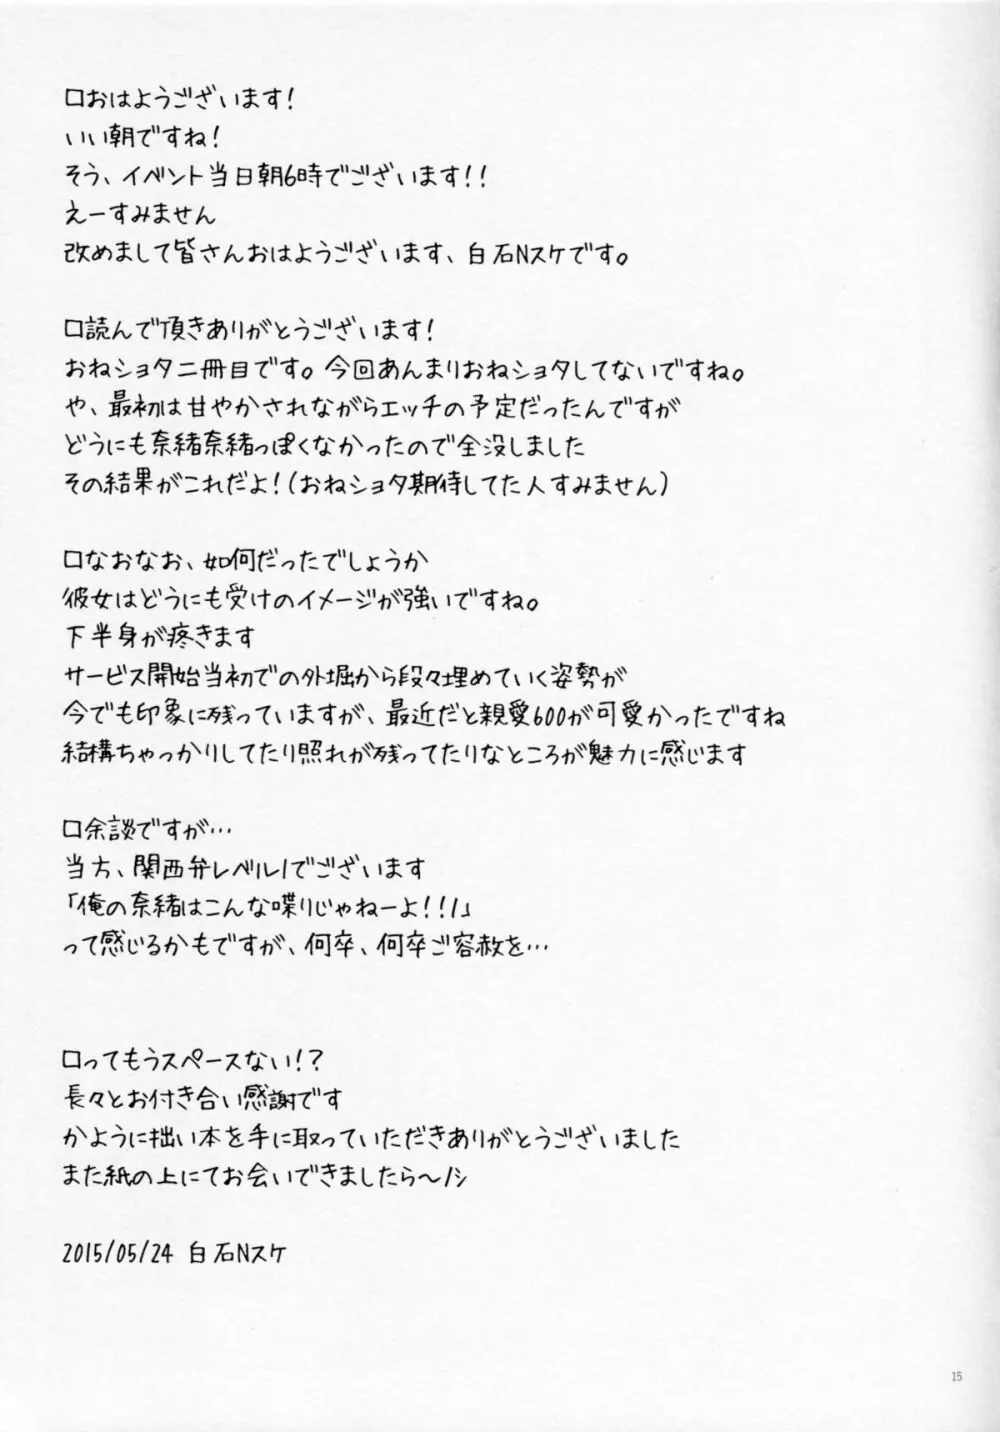 口おはようございます!
いい朝ですね!
そう、イベント当日朝6時でございます!!
えーすみません
改めまして皆さんおはようございます、白石Nスケです。
口読んで頂きありがとうございます!
おねショタ二冊目です。今回あんまりおねショタしてないですね。
や、最初は甘やかされながらエッチの予定だったんですが
どうにも奈緒奈緒っぽくなかったので全没しました
その結果がこれだよ!(おねショタ期待してた人すみません)
口なおなお、如何だったでしょうか
彼女はどうにも受けのイメージが強いですね。
下半身が疼きます
サービス開始当初での外堀から段々埋めていく姿勢が
今でも印象に残っていますが、最近だと親愛600が可愛かったですね
結構ちゃっかりしてたり照れが残ってたりなところが魅力に感じます
口余談ですが…
当方、関西弁レベル1でございます
「俺の奈緒はこんな喋りじゃねーよ!!1」
って感じるかもですが、何卒、何卒ご容赦を…
口ってもうスペースない!?
長々とお付き合い感謝です
かように拙い本を手に取っていただきありがとうございました
また紙の上にてお会いできましたら〜ノシ
2015/05/24 白石Nスケ
15